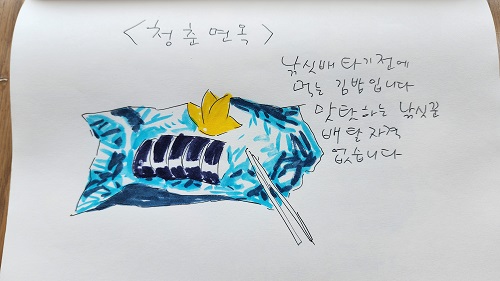 <청춘면옥>
낚싯배 타기전에
먹는 김밥입니다
맛탓하는 낚싯꾼
배탈자격
없습니다